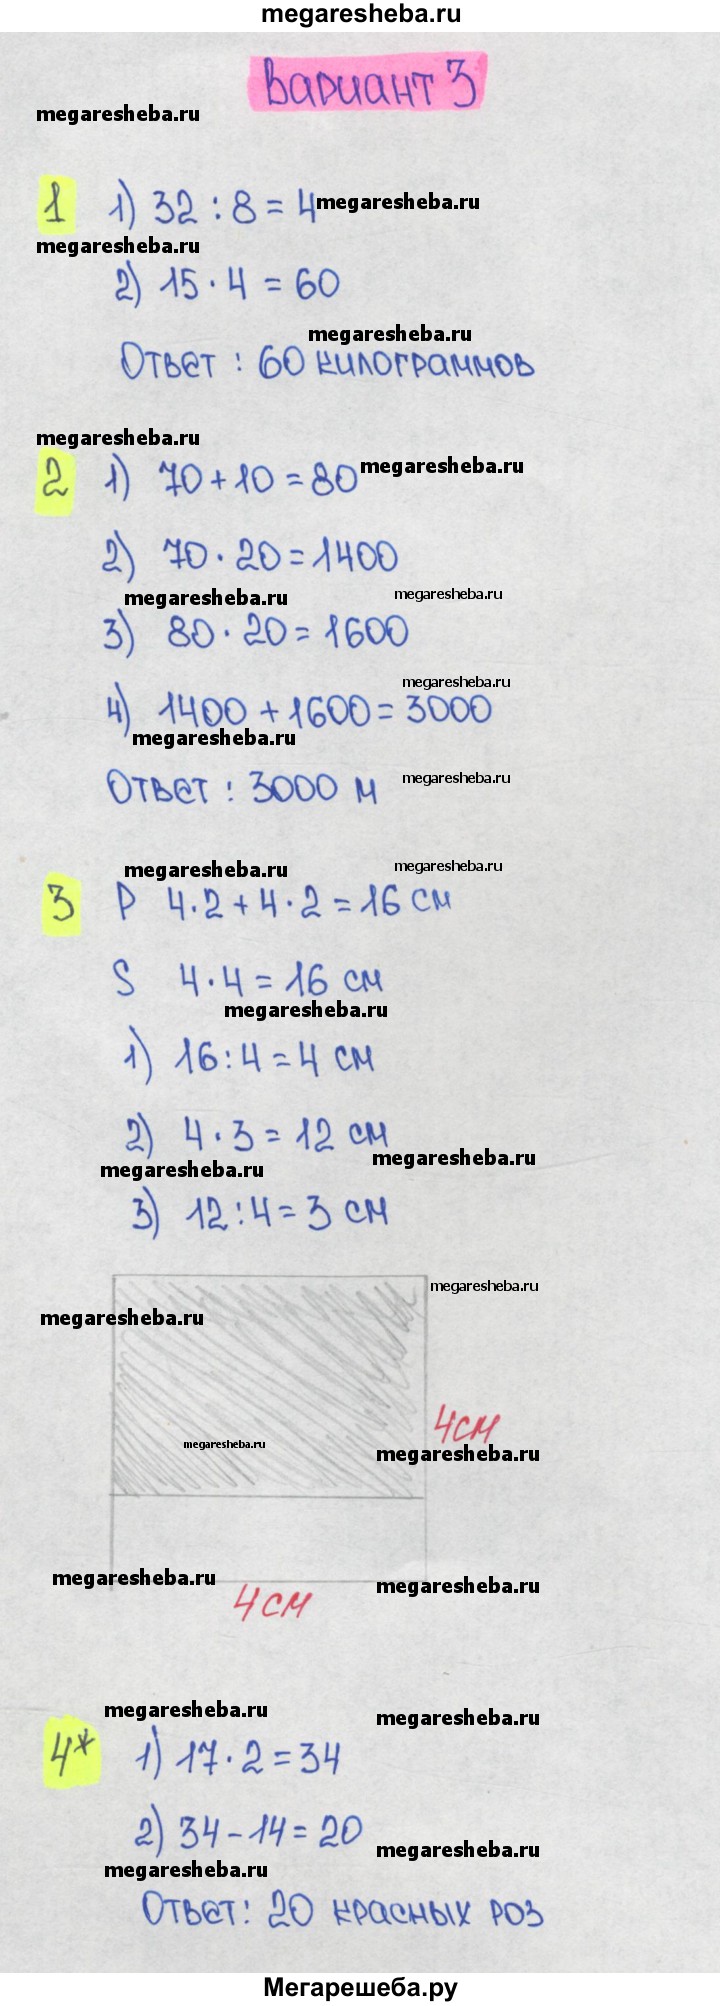 megaresheba.ru
Вариант 3
megaresheba.ru
1 1) 32 : 8 = 4 megaresheba.ru
megaresheba.ru
2) 15 · 4 = 60
megaresheba.ru
Ответ : 60 килограммов
megaresheba.ru
2 1) 70 + 10 = 80 megaresheba.ru
2) 70 · 20 = 1400
megaresheba.ru megaresheba.ru
3) 80 · 20 = 1600
megaresheba.ru
4) 1400 + 1600 = 3000
megaresheba.ru
Ответ : 3000 м megaresheba.ru
megaresheba.ru megaresheba.ru
3 P 4·2 + 4·2 = 16 см
S 4·4 = 16 см
megaresheba.ru
1) 16 : 4 = 4 см
2) 4 · 3 = 12 см
megaresheba.ru megaresheba.ru
3) 12 : 4 = 3 см
megaresheba.ru
megaresheba.ru
4 см
megaresheba.ru
megaresheba.ru
megaresheba.ru megaresheba.ru
4 см
megaresheba.ru megaresheba.ru
4* 1) 17 · 2 = 34
2) 34 - 14 = 20
megaresheba.ru
megaresheba.ru
Ответ: 20 красных роз
Мегарешеба.ру